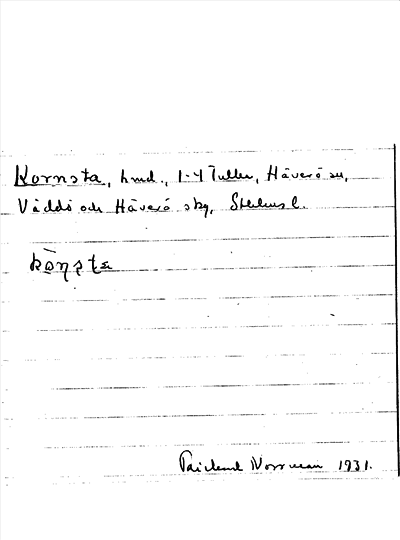 Kornsta, hmd., 1-4 Tulka, Häverö sn,
Väddö och Häverö skg, Sthlms l.
kò̤n̥sta
Norrman 1931.